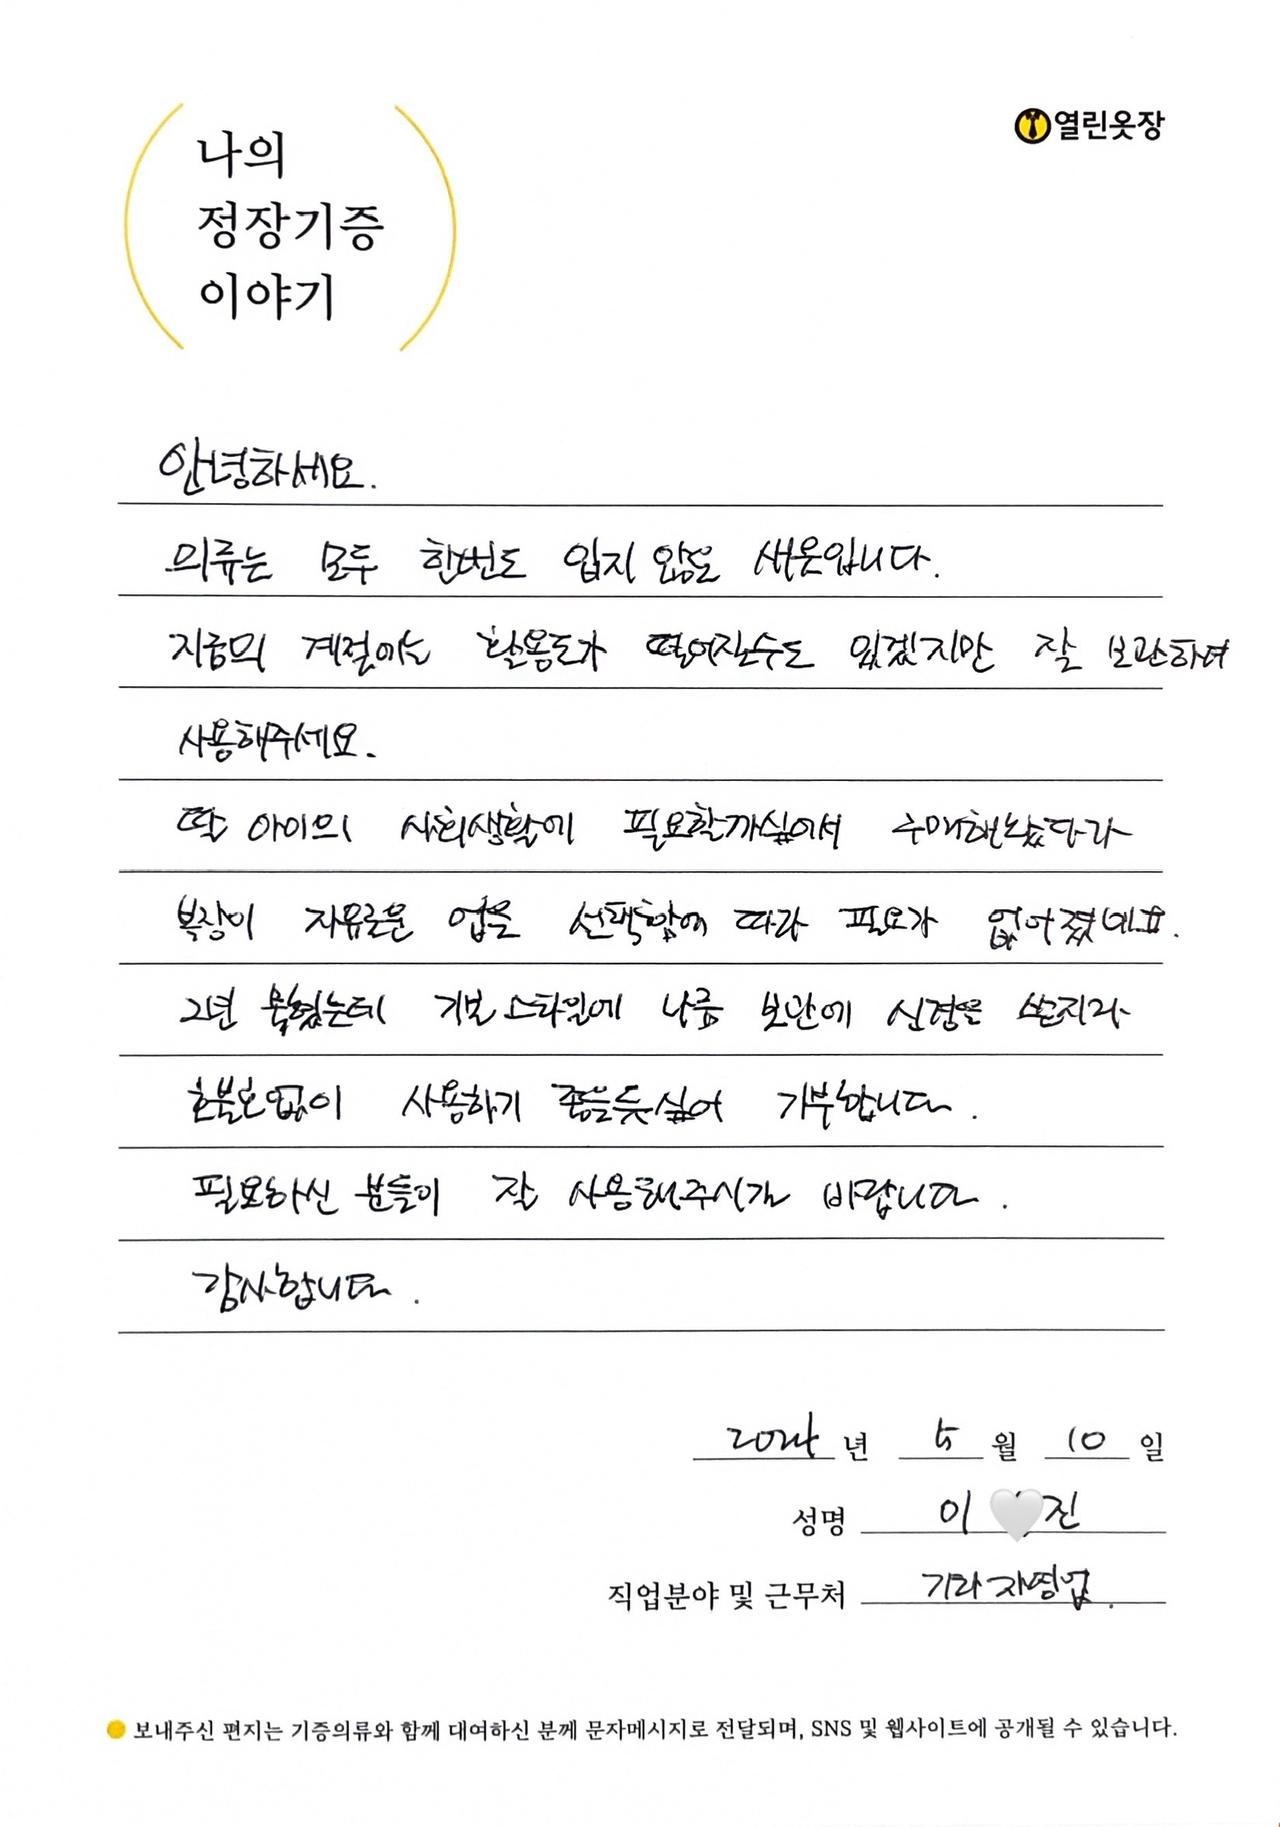 나의
정장기증
이야기
열린옷장
안녕하세요.
의류는 모두 한번도 입지 않은 새옷입니다.
지금의 계절에는 활용도가 떨어질수도 있겠지만 잘 보관하여
사용해주세요.
딸 아이의 사회생활에 필요할까싶어서 구매해놨다가
복장이 자유로운 업을 선택함에 따라 필요가 없어졌네요.
2년 묵혔는데 기본 스타일에 나름 보관에 신경을 쓴지라
호불호없이 사용하기 좋을듯싶어 기부합니다.
필요하신 분들이 잘 사용해주시길 바랍니다.
감사합니다.
2024 년 5 월 10 일
성명 이 진
직업분야 및 근무처 기타 자영업.
보내주신 편지는 기증의류와 함께 대여하신 분께 문자메시지로 전달되며, SNS 및 웹사이트에 공개될 수 있습니다.